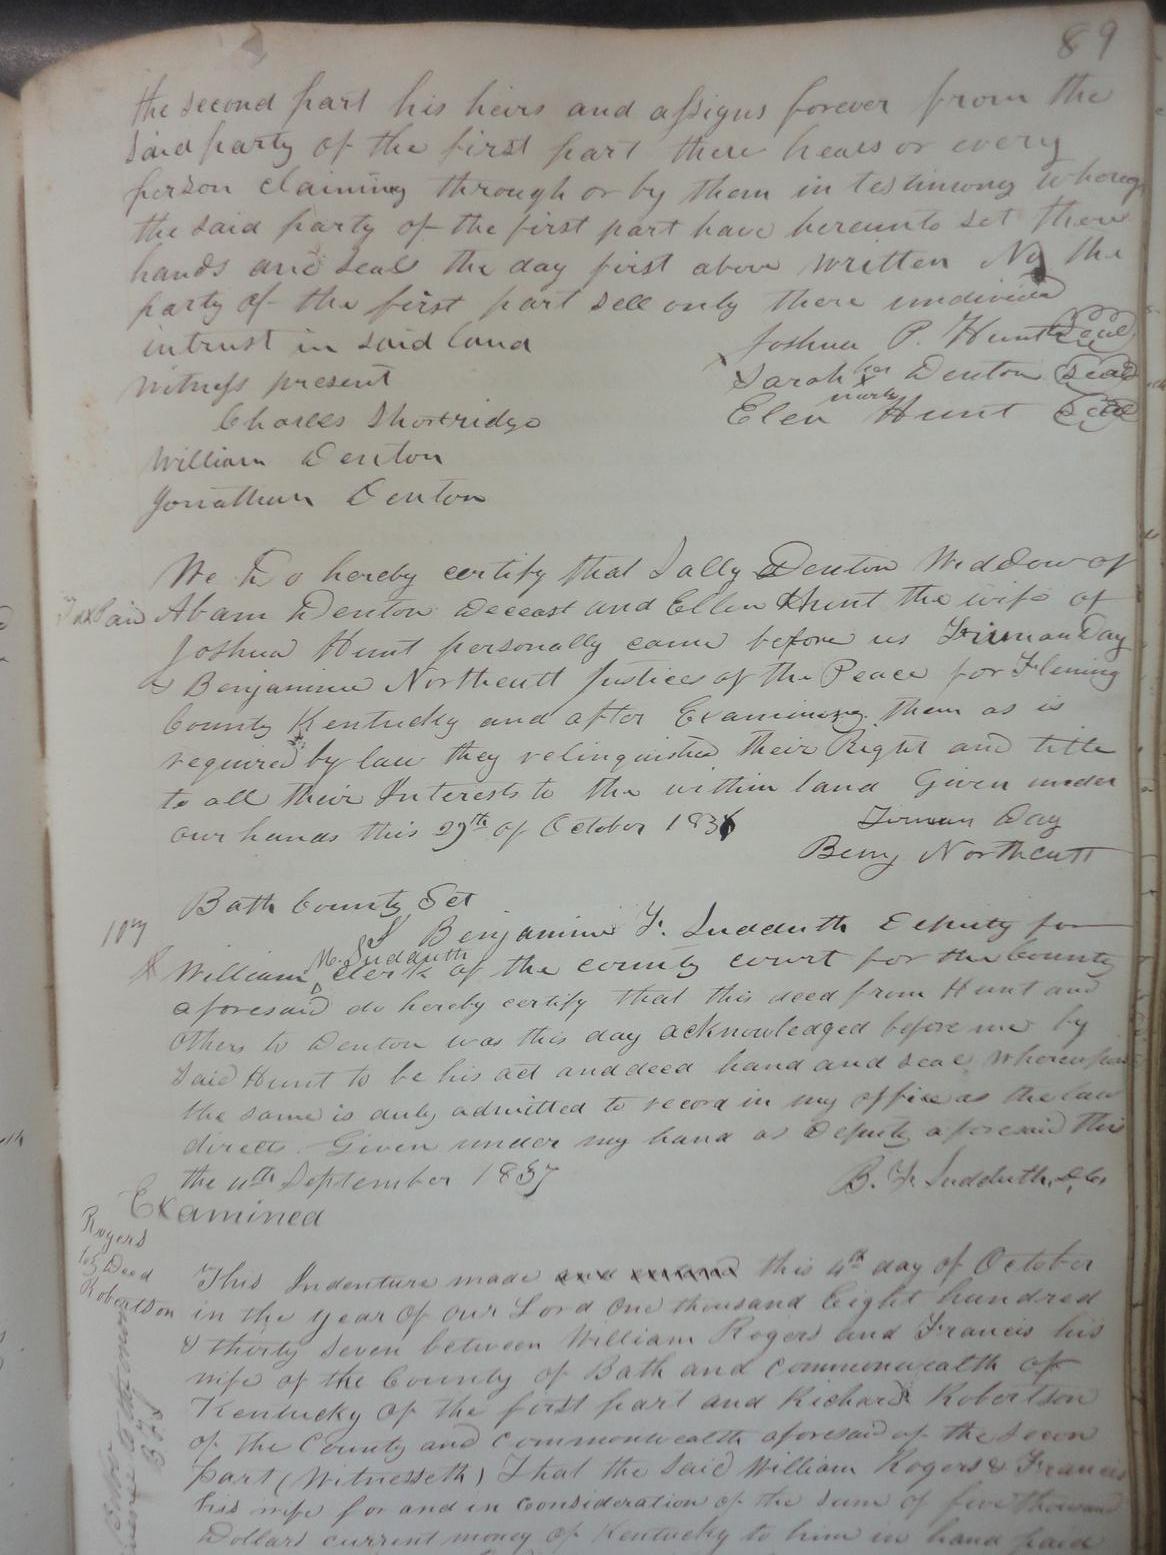 89
the second part his heirs and assigns forever from the
said party of the first part there hears or every
person claiming through or by them in testimony whereof
the said party of the first part have hereunto set there
hands and seals the day first above written NB the
party of the first part sell only there undivided
intrust in said land
Joshua P. Hunt Seal
Witness present
Sarah her x mark Denton Seal
Charles Shortridge
Elen Hunt Seal
William Denton
Jonathan Denton
We Do hereby certify that Sally Denton Widdow of
Tax Paid
Abam Denton Deceast and Ellen Hunt the wife of
Joshua Hunt personally came before us Truman Day
& Benjamine Northcutt Justices of the Peace for Fleming
County Kentucky and after Examining them as is
required by law they relinquished their Right and title
to all their Interests to the within land Given under
our hands this 29th of October 1836
Truman Day
Benj Northcutt
Bath County Sct
I Benjamine F. Sudduth Deputy for
William M. Sudduth clerk of the county court for the County
aforesaid do hereby certify that this deed from Hunt and
others to Denton was this day acknowledged before me by
said Hunt to be his act and deed hand and seal whereupon
the same is duly admitted to record in my office as the law
directs. Given under my hand as Deputy aforesaid this
the 11th September 1837
B. F. Sudduth, D.C.
Examined
Rogers
to Deed
Robertson
This Indenture made this 4th day of October
in the year of our Lord One thousand Eight hundred
& thirty Seven between William Rogers and Francis his
wife of the County of Bath and Commonwealth of
Kentucky of the first part and Richard Robertson
of the County and Commonwealth aforesaid of the Secon
part (Witnesseth) That the Said William Rogers & Francis
his wife for and in Consideration of the Sum of five thousand
Dollars current money of Kentucky to him in hand paid